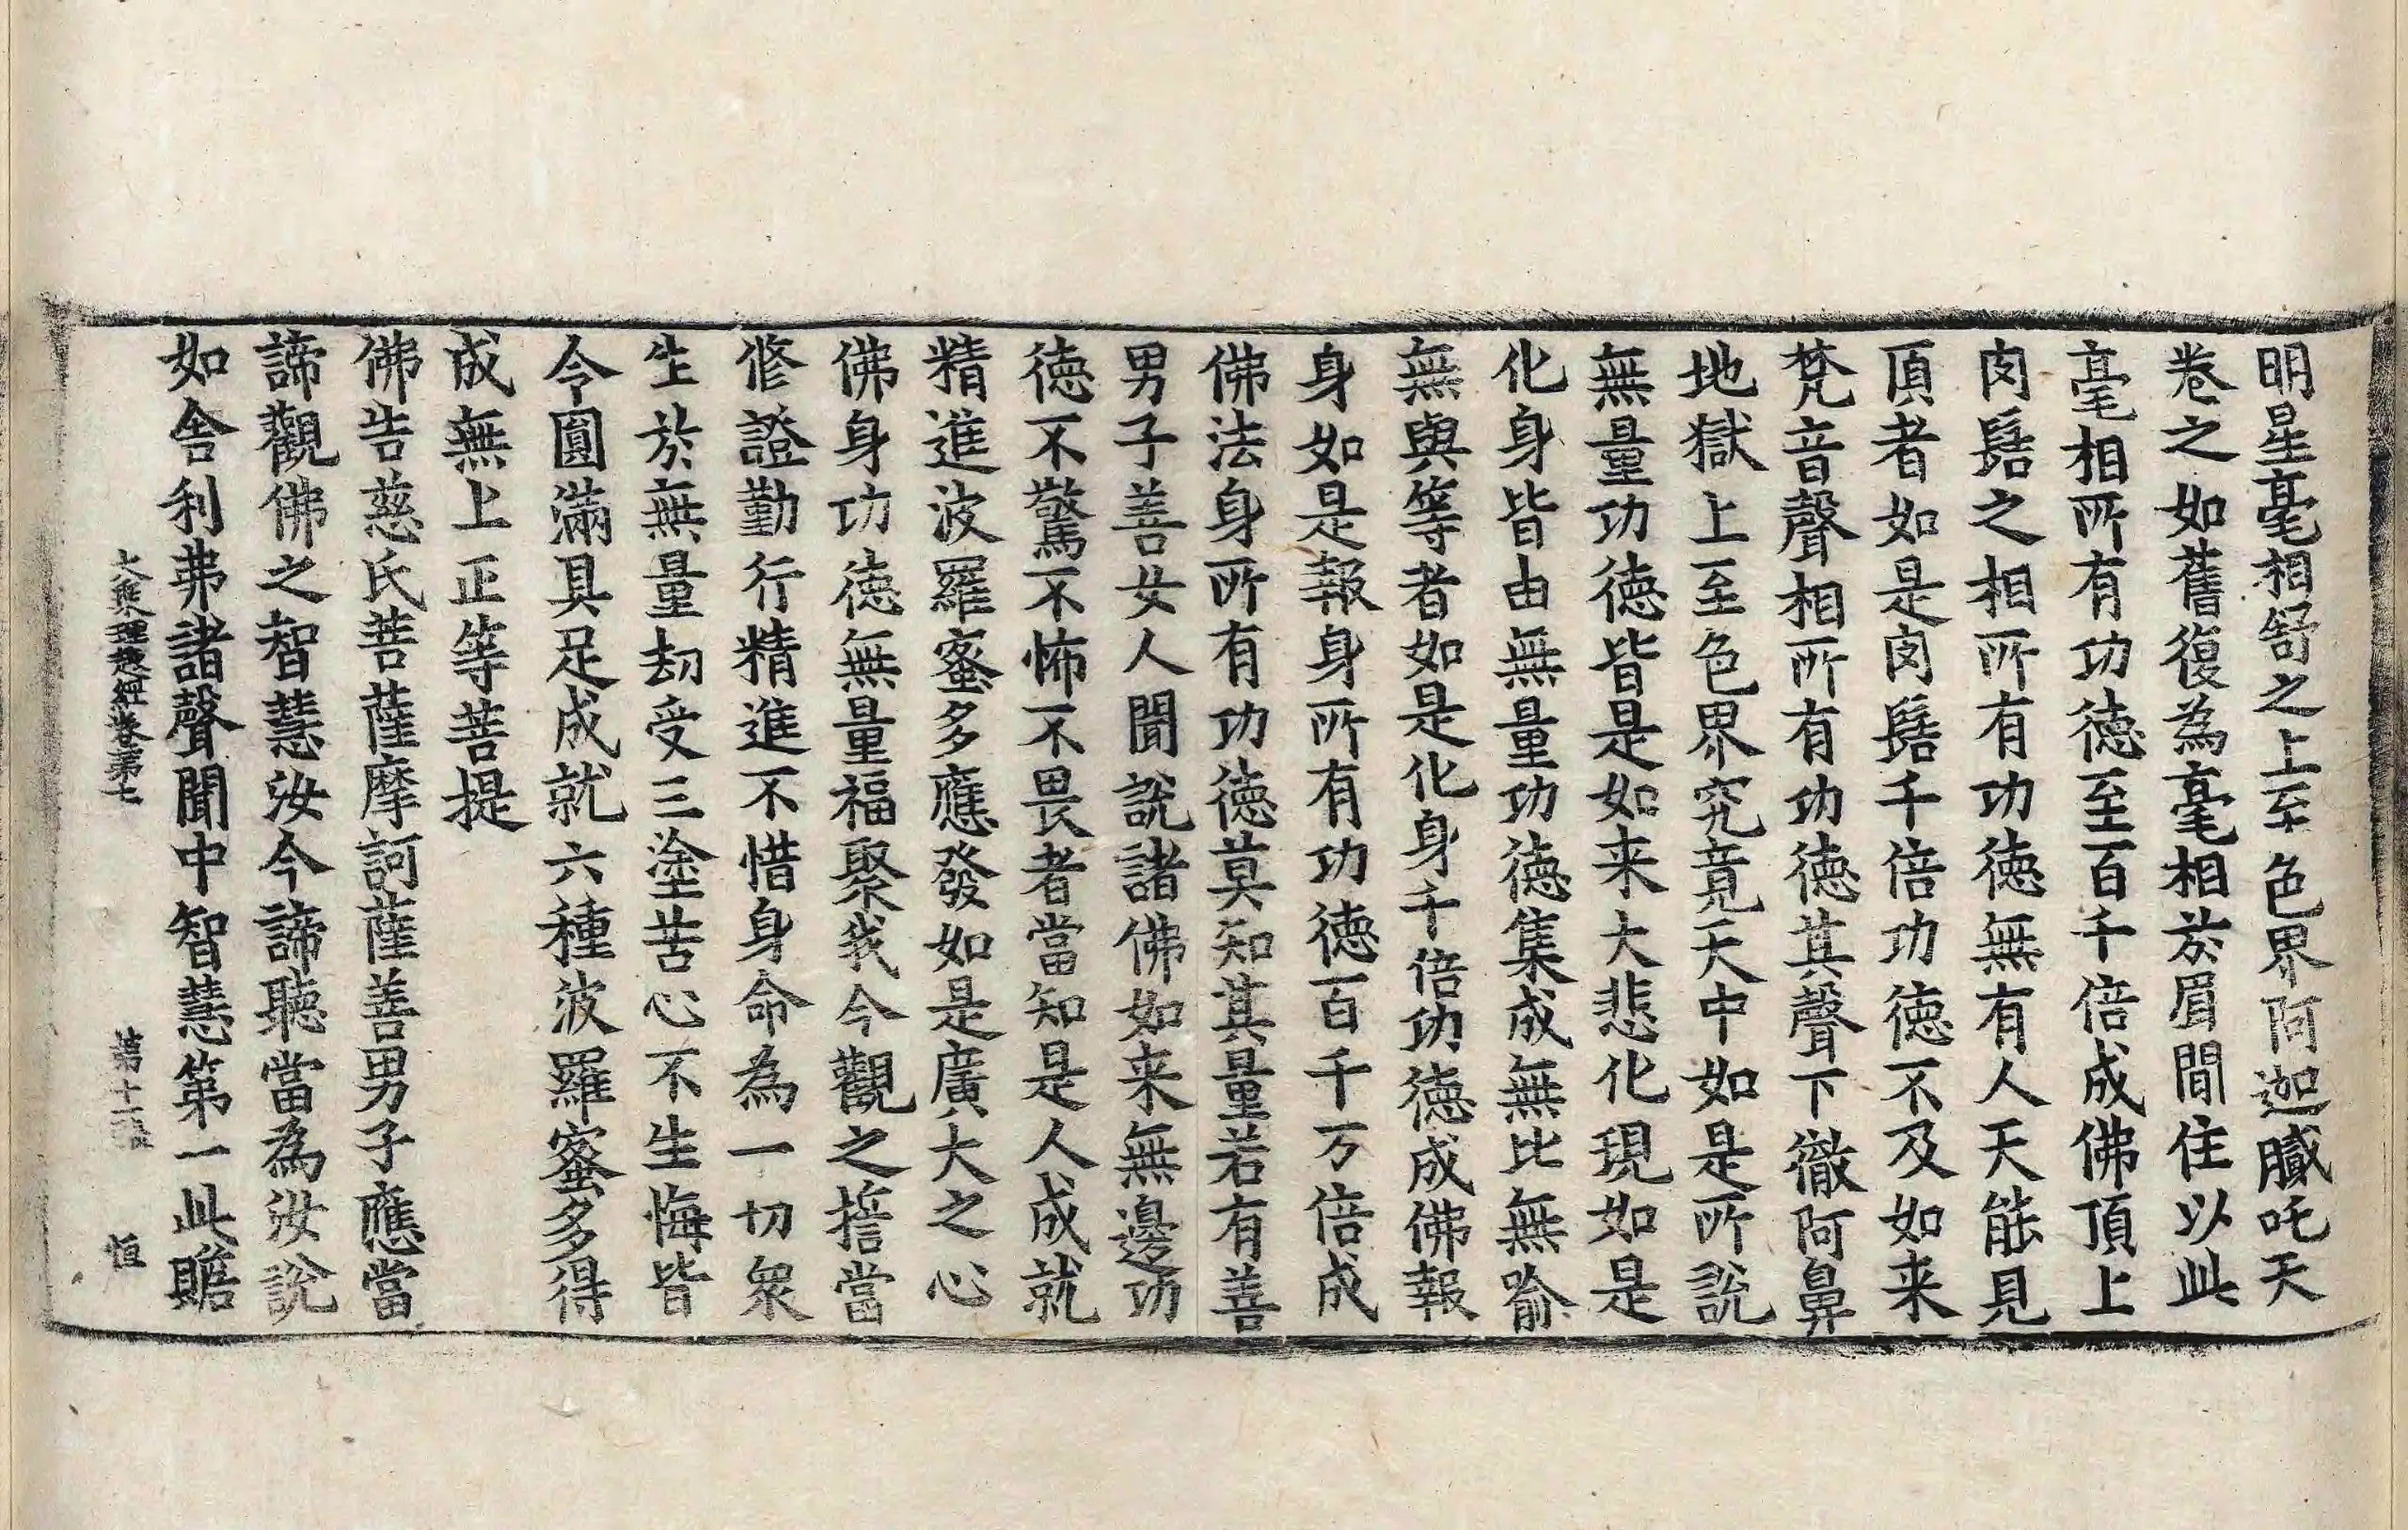 明星毫相舒之上至色界阿迦膩吒天
卷之如舊復為毫相於眉間住以此
毫相所有功德至百千倍成佛頂上
肉髻之相所有功德無有人天能見
頂者如是肉髻千倍功德不及如来
梵音聲相所有功德其聲下徹阿鼻
地獄上至色界究竟天中如是所說
無量功德皆是如来大悲化現如是
化身皆由無量功德集成無比無喻
無與等者如是化身千倍功德成佛報
身如是報身所有功德百千万倍成
佛法身所有功德莫知其量若有善
男子善女人聞說諸佛如来無邊功
德不驚不怖不畏者當知是人成就
精進波羅蜜多應發如是廣大之心
佛身功德無量福聚我今觀之誓當
修證勤行精進不惜身命為一切衆
生於無量劫受三塗苦心不生悔皆
令圓滿具足成就六種波羅蜜多得
成無上正等菩提
佛告慈氏菩薩摩訶薩善男子應當
諦觀佛之智慧汝今諦聽當為汝說
如舍利弗諸聲聞中智慧第一此贍
大乘理趣經卷第七 第十二張 恒